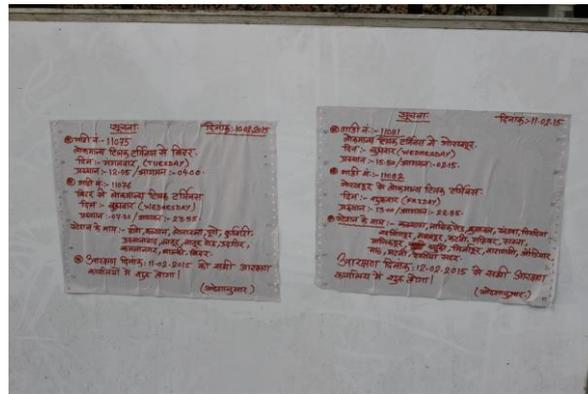 सूचना दिनांक:-10-02-2015
गाडी नं.-11075
लोकमान्य टिळक टर्मिनस से बिदर.
दिन:- मंगलवार (TUESDAY)
प्रस्थान:-12:05 /आगमन:-04:00
गाडी नं.:-11076
बिदर से लोकमान्य टिळक टर्मिनस
दिन:- बुधवार (WEDNESDAY)
प्रस्थान:- आगमन:- 23:55
स्टेशन के नाम:- ठाणे, कल्याण, पुणे,
उस्मानाबाद, लातूर, लातूर रोड, उदगीर,
भालकी, बिदर.
आरक्षण दिनांक:11-02-2015 को सभी आरक्षण
कार्यालय में शुरु होगा!
सूचना दिनांक:-11-02-15
गाडी नं.:-11081
लोकमान्य टिळक टर्मिनस से गोरखपूर.
दिन:- बुधवार (WEDNESDAY)
प्रस्थान:- आगमन:-02:15.
गाडी नं.:-11082
गोरखपूर से लोकमान्य टिळक टर्मिनस
दिन:- शुक्रवार (FRIDAY)
प्रस्थान:- आगमन:-
स्टेशन के नाम:- कल्याण, नासिकरोड, भुसावल, खंडवा,
जबलपूर, कटनी, सतना,
वाराणसी,
आरक्षण दिनांक:12-02-2015 से सभी आरक्षण
कार्यालय में शुरु होगा!